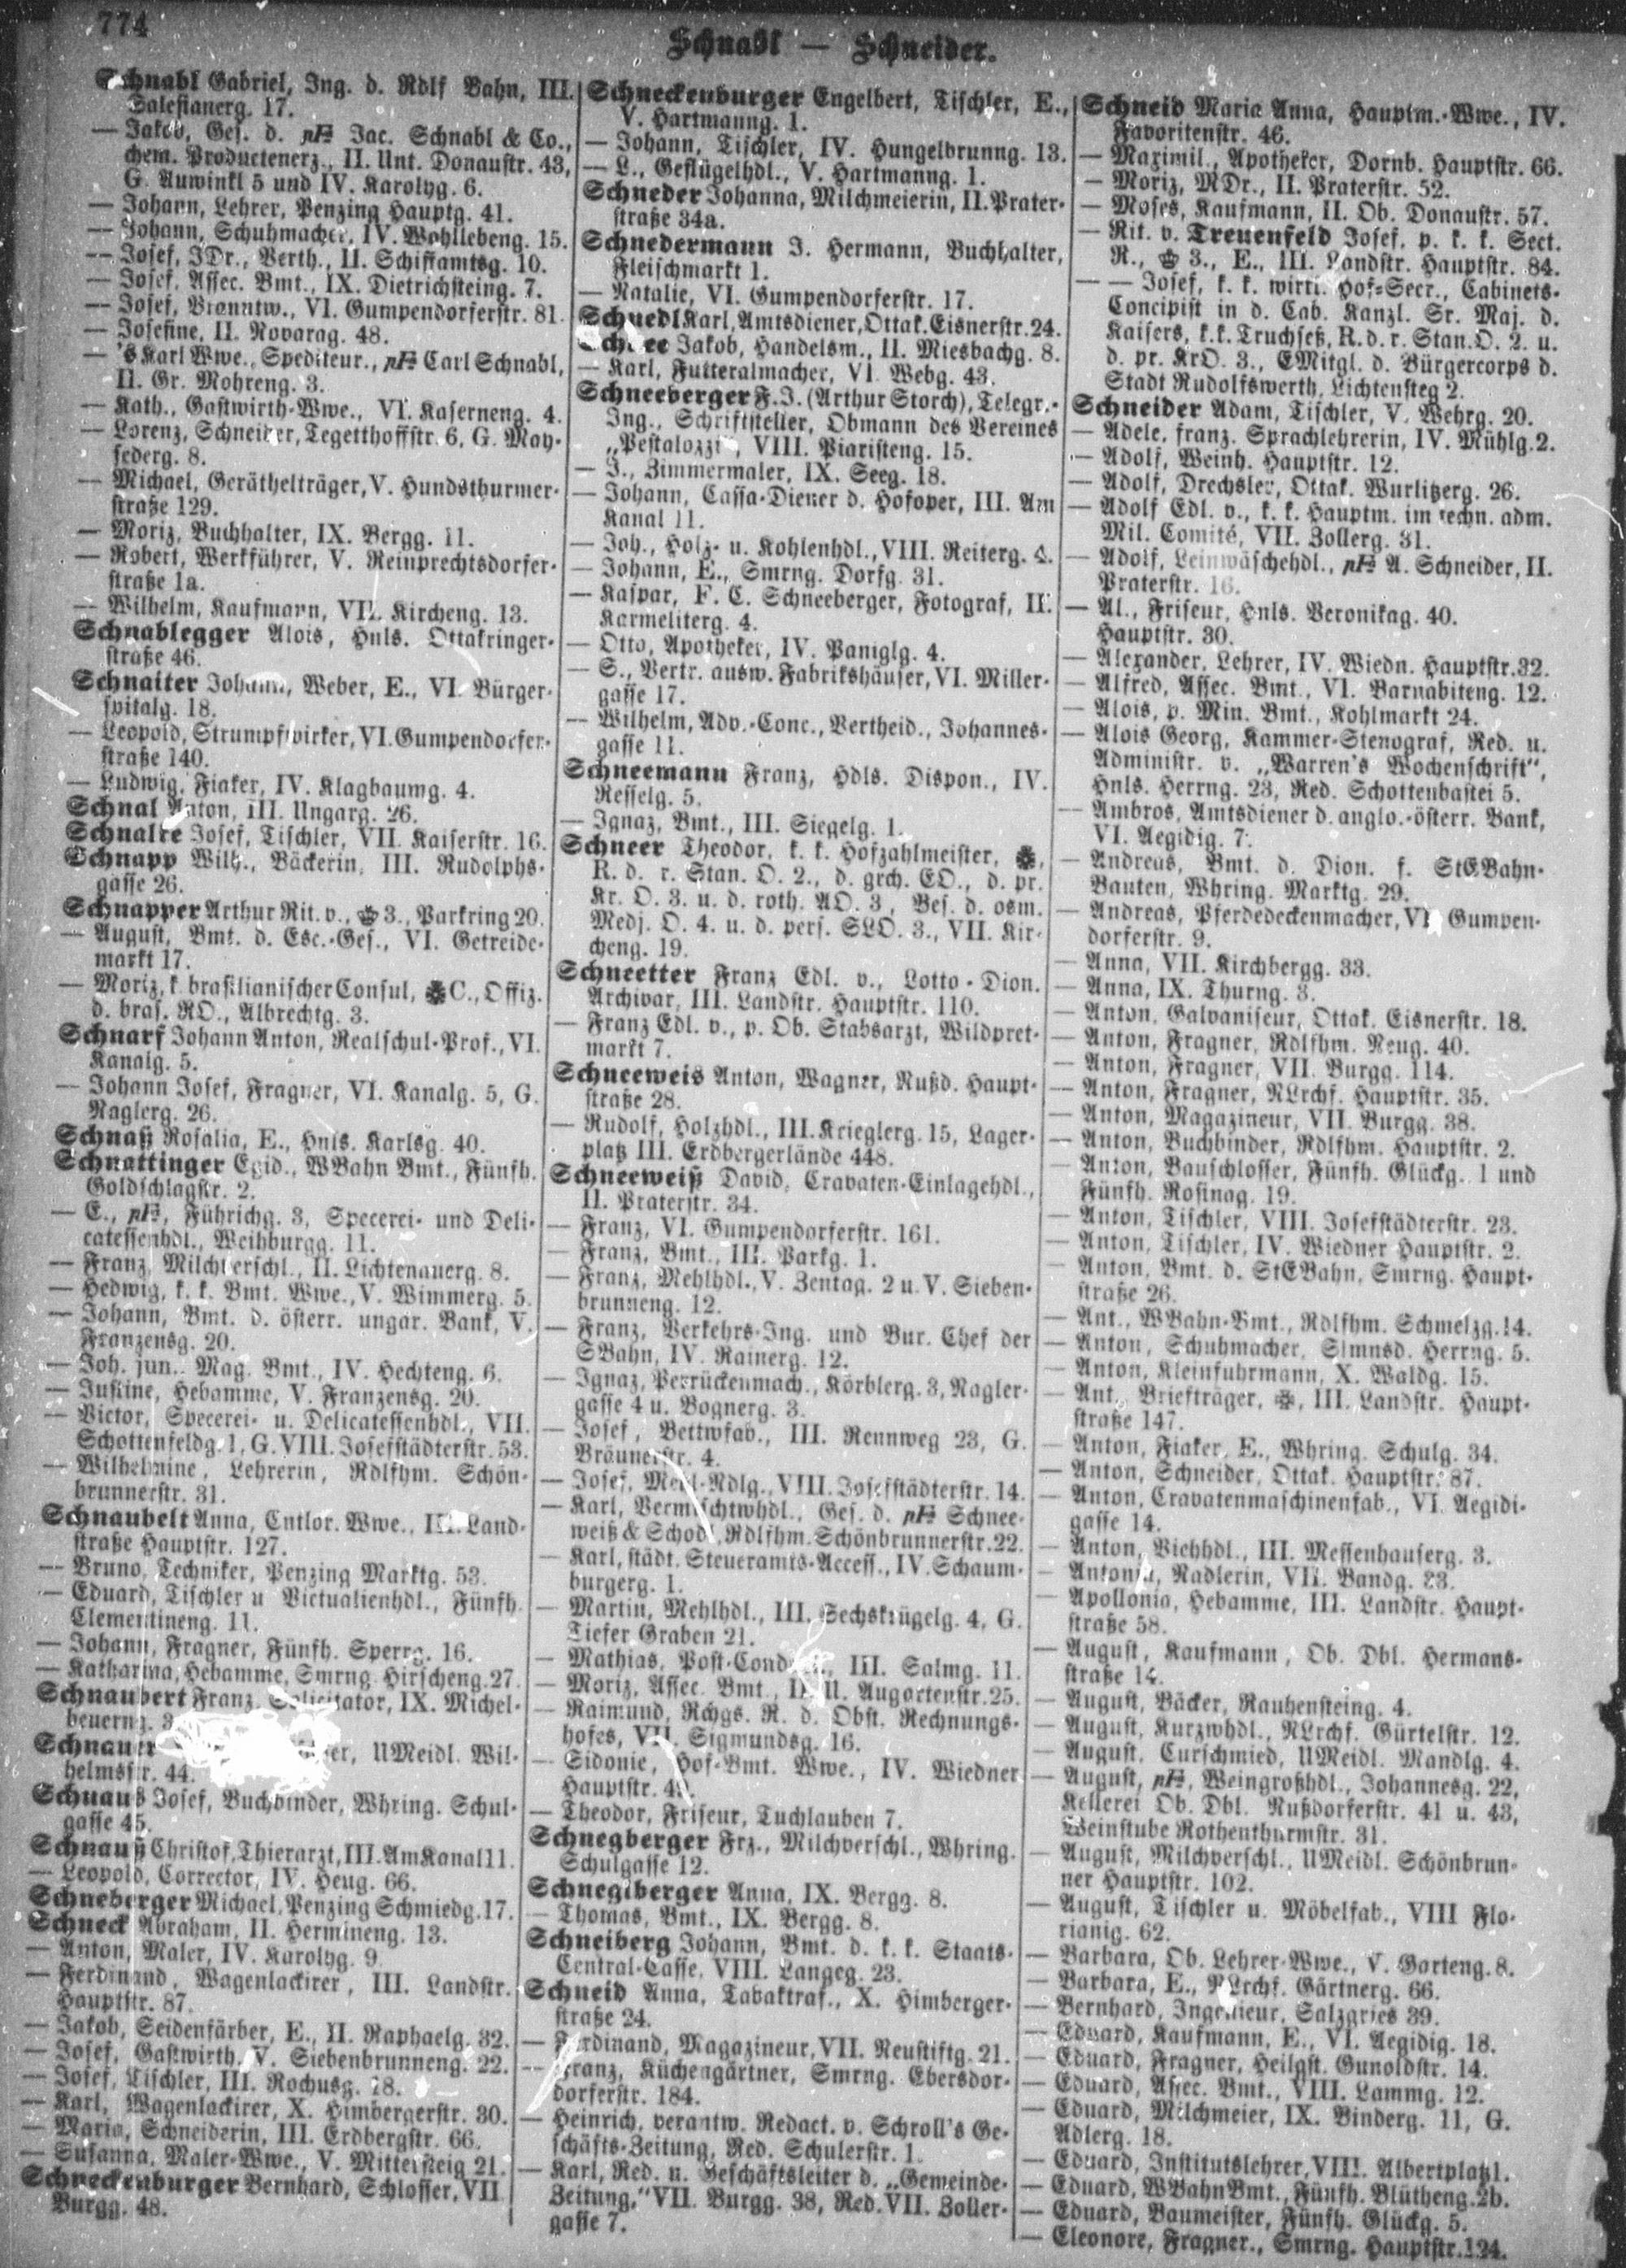 774
Schnabl — Schneider.
Schnabl Gabriel, Ing. d. Rdlf Bahn, III.
Salesianerg. 17.
— Jakob, Ges. d. pF Jac. Schnabl & Co.,
chem. Productenerz., II. Unt. Donaustr. 43,
G. Auwinkl 5 und IV. Karolyg. 6.
— Johann, Lehrer, Penzing Hauptg. 41.
— Johann, Schuhmacher, IV. Wohllebeng. 15.
— Josef, JDr., Verth., II. Schiffamtsg. 10.
— Josef, Assec. Bmt., IX. Dietrichsteing. 7.
— Josef, Branntw., VI. Gumpendorferstr. 81.
— Josefine, II. Novarag. 48.
— 's Karl Wwe., Spediteur., pF Carl Schnabl,
II. Gr. Mohreng. 3.
— Kath., Gastwirth-Wwe., VI. Kaserneng. 4.
— Lorenz, Schneider, Tegetthoffstr. 6, G. May-
federg. 8.
— Michael, Geräthelträger, V. Hundsthurmer-
straße 129.
— Moriz, Buchhalter, IX. Bergg. 11.
— Robert, Werkführer, V. Reinprechtsdorfer-
straße 1a.
— Wilhelm, Kaufmann, VII. Kircheng. 13.
Schnablegger Alois, Hnls. Ottakringer-
straße 46.
Schnaiter Johann, Weber, E., VI. Bürger-
spitalg. 18.
— Leopold, Strumpfwirker, VI. Gumpendorfer-
straße 140.
— Ludwig, Fiaker, IV. Klagbaumg. 4.
Schnal Anton, III. Ungarg. 26.
Schnalke Josef, Tischler, VII. Kaiserstr. 16.
Schnapp Wilh., Bäckerin, III. Rudolphs-
gasse 26.
Schnapper Arthur Rit. v., 3., Parkring 20.
— August, Bmt. d. Esc.-Ges., VI. Getreide-
markt 17.
— Moriz, k. brasilianischer Consul, C., Offiz.
d. bras. RO., Albrechtg. 3.
Schnarf Johann Anton, Realschul-Prof., VI.
Kanalg. 5.
— Johann Josef, Fragner, VI. Kanalg. 5, G.
Naglerg. 26.
Schnaß Rosalia, E., Hnls. Karlsg. 40.
Schnattinger Egid., WBahn Bmt., Fünfh.
Goldschlagstr. 2.
— E., pF, Führichg. 3, Specerei- und Deli-
catessenhdl., Weihburgg. 11.
— Franz, Milchverschl., II. Lichtenauerg. 8.
— Hedwig, k. k. Bmt. Wwe., V. Wimmerg. 5.
— Johann, Bmt. d. österr. ungar. Bank, V.
Franzensg. 20.
— Joh. jun., Mag. Bmt., IV. Hechteng. 6.
— Justine, Hebamme, V. Franzensg. 20.
— Victor, Specerei- u. Delicatessenhdl., VII.
Schottenfeldg. 1, G. VIII. Josefstädterstr. 53.
— Wilhelmine, Lehrerin, Rdlfhm. Schön-
brunnerstr. 31.
Schnaubelt Anna, Cntlor. Wwe., III. Land-
straße Hauptstr. 127.
— Bruno, Techniker, Penzing Marktg. 53.
— Eduard, Tischler u Victualienhdl., Fünfh.
Clementineng. 11.
— Johann, Fragner, Fünfh. Sperrg. 16.
— Katharina, Hebamme, Smrng. Hirscheng. 27.
Schnaubert Franz, Solicitator, IX. Michel-
beuerng. 3
Schnauer UMeidl. Wil-
helmsstr. 44.
Schnaus Josef, Buchbinder, Whring. Schul-
gasse 45.
Schnauß Christof, Thierarzt, III. Am Kanal 11.
— Leopold, Corrector, IV. Heug. 66.
Schneberger Michael, Penzing Schmiedg. 17.
Schneck Abraham, II. Hermineng. 13.
— Anton, Maler, IV. Karolyg. 9.
— Ferdinand, Wagenlackirer, III. Landstr.
Hauptstr. 87.
— Jakob, Seidenfärber, E., II. Raphaelg. 32.
— Josef, Gastwirth, V. Siebenbrunneng. 22.
— Josef, Tischler, III. Rochusg. 18.
— Karl, Wagenlackirer, X. Himbergerstr. 30.
— Maria, Schneiderin, III. Erdbergstr. 66.
— Susanna, Maler-Wwe., V. Mittersteig 21.
Schneckenburger Bernhard, Schlosser, VII
Burgg. 48.
Schneckenburger Engelbert, Tischler, E.,
V. Hartmanng. 1.
— Johann, Tischler, IV. Hungelbrunng. 13.
— L., Geflügelhdl., V. Hartmanng. 1.
Schneder Johanna, Milchmeierin, II. Prater-
straße 34a.
Schnedermann J. Hermann, Buchhalter,
Fleischmarkt 1.
— Natalie, VI. Gumpendorferstr. 17.
Schnedl Karl, Amtsdiener, Ottak. Eisnerstr. 24.
Schnee Jakob, Handelsm., II. Miesbachg. 8.
— Karl, Futteralmacher, VI. Webg. 43.
Schneeberger F. J. (Arthur Storch), Telegr.-
Ing., Schriftsteller, Obmann des Vereines
„Pestalozzi", VIII. Piaristeng. 15.
— J., Zimmermaler, IX. Seeg. 18.
— Johann, Cassa-Diener d. Hofoper, III. Am
Kanal 11.
— Joh., Holz- u. Kohlenhdl., VIII. Reiterg. 4.
— Johann, E., Smrng. Dorfg. 31.
— Kaspar, F. C. Schneeberger, Fotograf, II.
Karmeliterg. 4.
— Otto, Apotheker, IV. Paniglg. 4.
— S., Vertr. ausw. Fabrikshäuser, VI. Miller-
gasse 17.
— Wilhelm, Adv.-Conc., Vertheid., Johannes-
gasse 11.
Schneemann Franz, Hdls. Dispon., IV.
Resselg. 5.
— Ignaz, Bmt., III. Siegelg. 1.
Schneer Theodor, k. k. Hofzahlmeister,
R. d. r. Stan. O. 2., d. grch. EO., d. pr.
Kr. O. 3. u. d. roth. AO. 3, Bes. d. osm.
Medj. O. 4. u. d. pers. SLO. 3., VII. Kir-
cheng. 19.
Schneetter Franz Edl. v., Lotto-Dion.
Archivar, III. Landstr. Hauptstr. 110.
— Franz Edl. v., p. Ob. Stabsarzt, Wildpret-
markt 7.
Schneeweis Anton, Wagner, Rußd. Haupt-
straße 28.
— Rudolf, Holzhdl., III. Krieglerg. 15, Lager-
platz III. Erdbergerlände 448.
Schneeweiß David, Cravaten-Einlagehdl.,
II. Praterstr. 34.
— Franz, VI. Gumpendorferstr. 161.
— Franz, Bmt., III. Parkg. 1.
— Franz, Mehlhdl., V. Zentag. 2 u. V. Sieben-
brunneng. 12.
— Franz, Verkehrs-Ing. und Bur. Chef der
SBahn, IV. Rainerg. 12.
— Ignaz, Perrückenmach., Körblerg. 3, Nagler-
gasse 4 u. Bognerg. 3.
— Josef, Bettwfab., III. Rennweg 23, G.
Bräunerstr. 4.
— Josef, Mehl-Ndlg., VIII. Josefstädterstr. 14.
— Karl, Vermischtwhdl., Ges. d. pF Schnee-
weiß & Schod, Rdlfhm. Schönbrunnerstr. 22.
— Karl, städt. Steueramts-Access., IV. Schaum-
burgerg. 1.
— Martin, Mehlhdl., III. Sechskrügelg. 4, G.
Tiefer Graben 21.
— Mathias, Post-Cond III. Salmg. 11.
— Moriz, Assec. Bmt., II. U. Augartenstr. 25.
— Raimund, Rchgs. R. d. Obst. Rechnungs-
hofes, VII. Sigmundsg. 16.
— Sidonie, Hof-Bmt. Wwe., IV. Wiedner
Hauptstr.
— Theodor, Friseur, Tuchlauben 7.
Schnegberger Frz., Milchverschl., Whring.
Schulgasse 12.
Schneglberger Anna, IX. Bergg. 8.
— Thomas, Bmt., IX. Bergg. 8.
Schneiberg Johann, Bmt. d. k. k. Staats-
Central-Casse, VIII. Langeg. 23.
Schneid Anna, Tabaktraf., X. Himberger-
straße 24.
— Ferdinand, Magazineur, VII. Neustiftg. 21.
— Franz, Küchengärtner, Smrng. Ebersdor-
dorferstr. 184.
— Heinrich, verantw. Redact. v. Schroll's Ge-
schäfts-Zeitung, Red. Schulerstr. 1.
— Karl, Red. u. Geschäftsleiter d. „Gemeinde-
Zeitung," VII. Burgg. 38, Red. VII. Zoller-
gasse 7.
Schneid Maria Anna, Hauptm.-Wwe., IV.
Favoritenstr. 46.
— Maximil., Apotheker, Dornb. Hauptstr. 66.
— Moriz, MDr., II. Praterstr. 52.
— Moses, Kaufmann, II. Ob. Donaustr. 57.
— Rit. v. Treuenfeld Josef, p. k. k. Sect.
R., 3., E., III. Landstr. Hauptstr. 84.
— — Josef, k. k. wirkl. Hof-Secr., Cabinets-
Concipist in d. Cab. Kanzl. Sr. Maj. d.
Kaisers, k. k. Truchseß, R. d. r. Stan. O. 2. u.
d. pr. KrO. 3., EMitgl. d. Bürgercorps d.
Stadt Rudolfswerth, Lichtensteg 2.
Schneider Adam, Tischler, V. Wehrg. 20.
— Adele, franz. Sprachlehrerin, IV. Mühlg. 2.
— Adolf, Weinh. Hauptstr. 12.
— Adolf, Drechsler, Ottak. Wurlitzerg. 26.
— Adolf Edl. v., k. k. Hauptm. im techn. adm.
Mil. Comité, VII. Zollerg. 31.
— Adolf, Leinwäschehdl., pF A. Schneider, II.
Praterstr. 16.
— Al., Friseur, Hnls. Veronikag. 40.
Hauptstr. 30.
— Alexander, Lehrer, IV. Wiedn. Hauptstr. 32.
— Alfred, Assec. Bmt., VI. Barnabiteng. 12.
— Alois, p. Min. Bmt., Kohlmarkt 24.
— Alois Georg, Kammer-Stenograf, Red. u.
Administr. v. „Warren's Wochenschrift",
Hnls. Herrng. 23, Red. Schottenbastei 5.
— Ambros, Amtsdiener d. anglo.-österr. Bank,
VI. Aegidig. 7.
— Andreas, Bmt. d. Dion. f. StEBahn-
Bauten, Whring. Marktg. 29.
— Andreas, Pferdedeckenmacher, VI Gumpen-
dorferstr. 9.
— Anna, VII. Kirchbergg. 33.
— Anna, IX. Thurng. 3.
— Anton, Galvaniseur, Ottak. Eisnerstr. 18.
— Anton, Fragner, Rdlfhm. Neug. 40.
— Anton, Fragner, VII. Burgg. 114.
— Anton, Fragner, NLrchf. Hauptstr. 35.
— Anton, Magazineur, VII. Burgg. 38.
— Anton, Buchbinder, Rdlfhm. Hauptstr. 2.
— Anton, Bauschlosser, Fünfh. Glückg. 1 und
Fünfh. Rosinag. 19.
— Anton, Tischler, VIII. Josefstädterstr. 23.
— Anton, Tischler, IV. Wiedner Hauptstr. 2.
— Anton, Bmt. d. StEBahn, Smrng. Haupt-
straße 26.
— Ant., WBahn-Bmt., Rdlfhm. Schmelzg. 14.
— Anton, Schuhmacher, Slmnsd. Herrng. 5.
— Anton, Kleinfuhrmann, X. Waldg. 15.
— Ant. Briefträger, III. Landstr. Haupt-
straße 147.
— Anton, Fiaker, E., Whring. Schulg. 34.
— Anton, Schneider, Ottak. Hauptstr. 87.
— Anton, Cravatenmaschinenfab., VI. Aegidi-
gasse 14.
— Anton, Viehhdl., III. Messenhauserg. 3.
— Antonia, Nadlerin, VII. Bandg. 23.
— Apollonia, Hebamme, III. Landstr. Haupt-
straße 58.
— August, Kaufmann, Ob. Dbl. Hermans-
straße 14.
— August, Bäcker, Rauhensteing. 4.
— August, Kurzwhdl., NLrchf. Gürtelstr. 12.
— August, Curschmied, UMeidl. Mandlg. 4.
— August, pF, Weingroßhdl., Johannesg. 22,
Kellerei Ob. Dbl. Nußdorferstr. 41 u. 43,
Weinstube Rothenthurmstr. 31.
— August, Milchverschl., UMeidl. Schönbrun-
ner Hauptstr. 102.
— August, Tischler u. Möbelfab., VIII Flo-
rianig. 62.
— Barbara, Ob. Lehrer-Wwe., V. Garteng. 8.
— Barbara, E., NLrchf. Gärtnerg. 66.
— Bernhard, Ingenieur, Salzgries 39.
— Eduard, Kaufmann, E., VI. Aegidig. 18.
— Eduard, Fragner, Heilgst. Gunoldstr. 14.
— Eduard, Assec. Bmt., VIII. Lammg. 12.
— Eduard, Milchmeier, IX. Binderg. 11, G.
Adlerg. 18.
— Eduard, Institutslehrer, VIII. Albertplatz 1.
— Eduard, WBahn Bmt., Fünfh. Blütheng. 2b.
— Eduard, Baumeister, Fünfh. Glückg. 5.
— Eleonore, Fragner., Smrng. Hauptstr. 124.